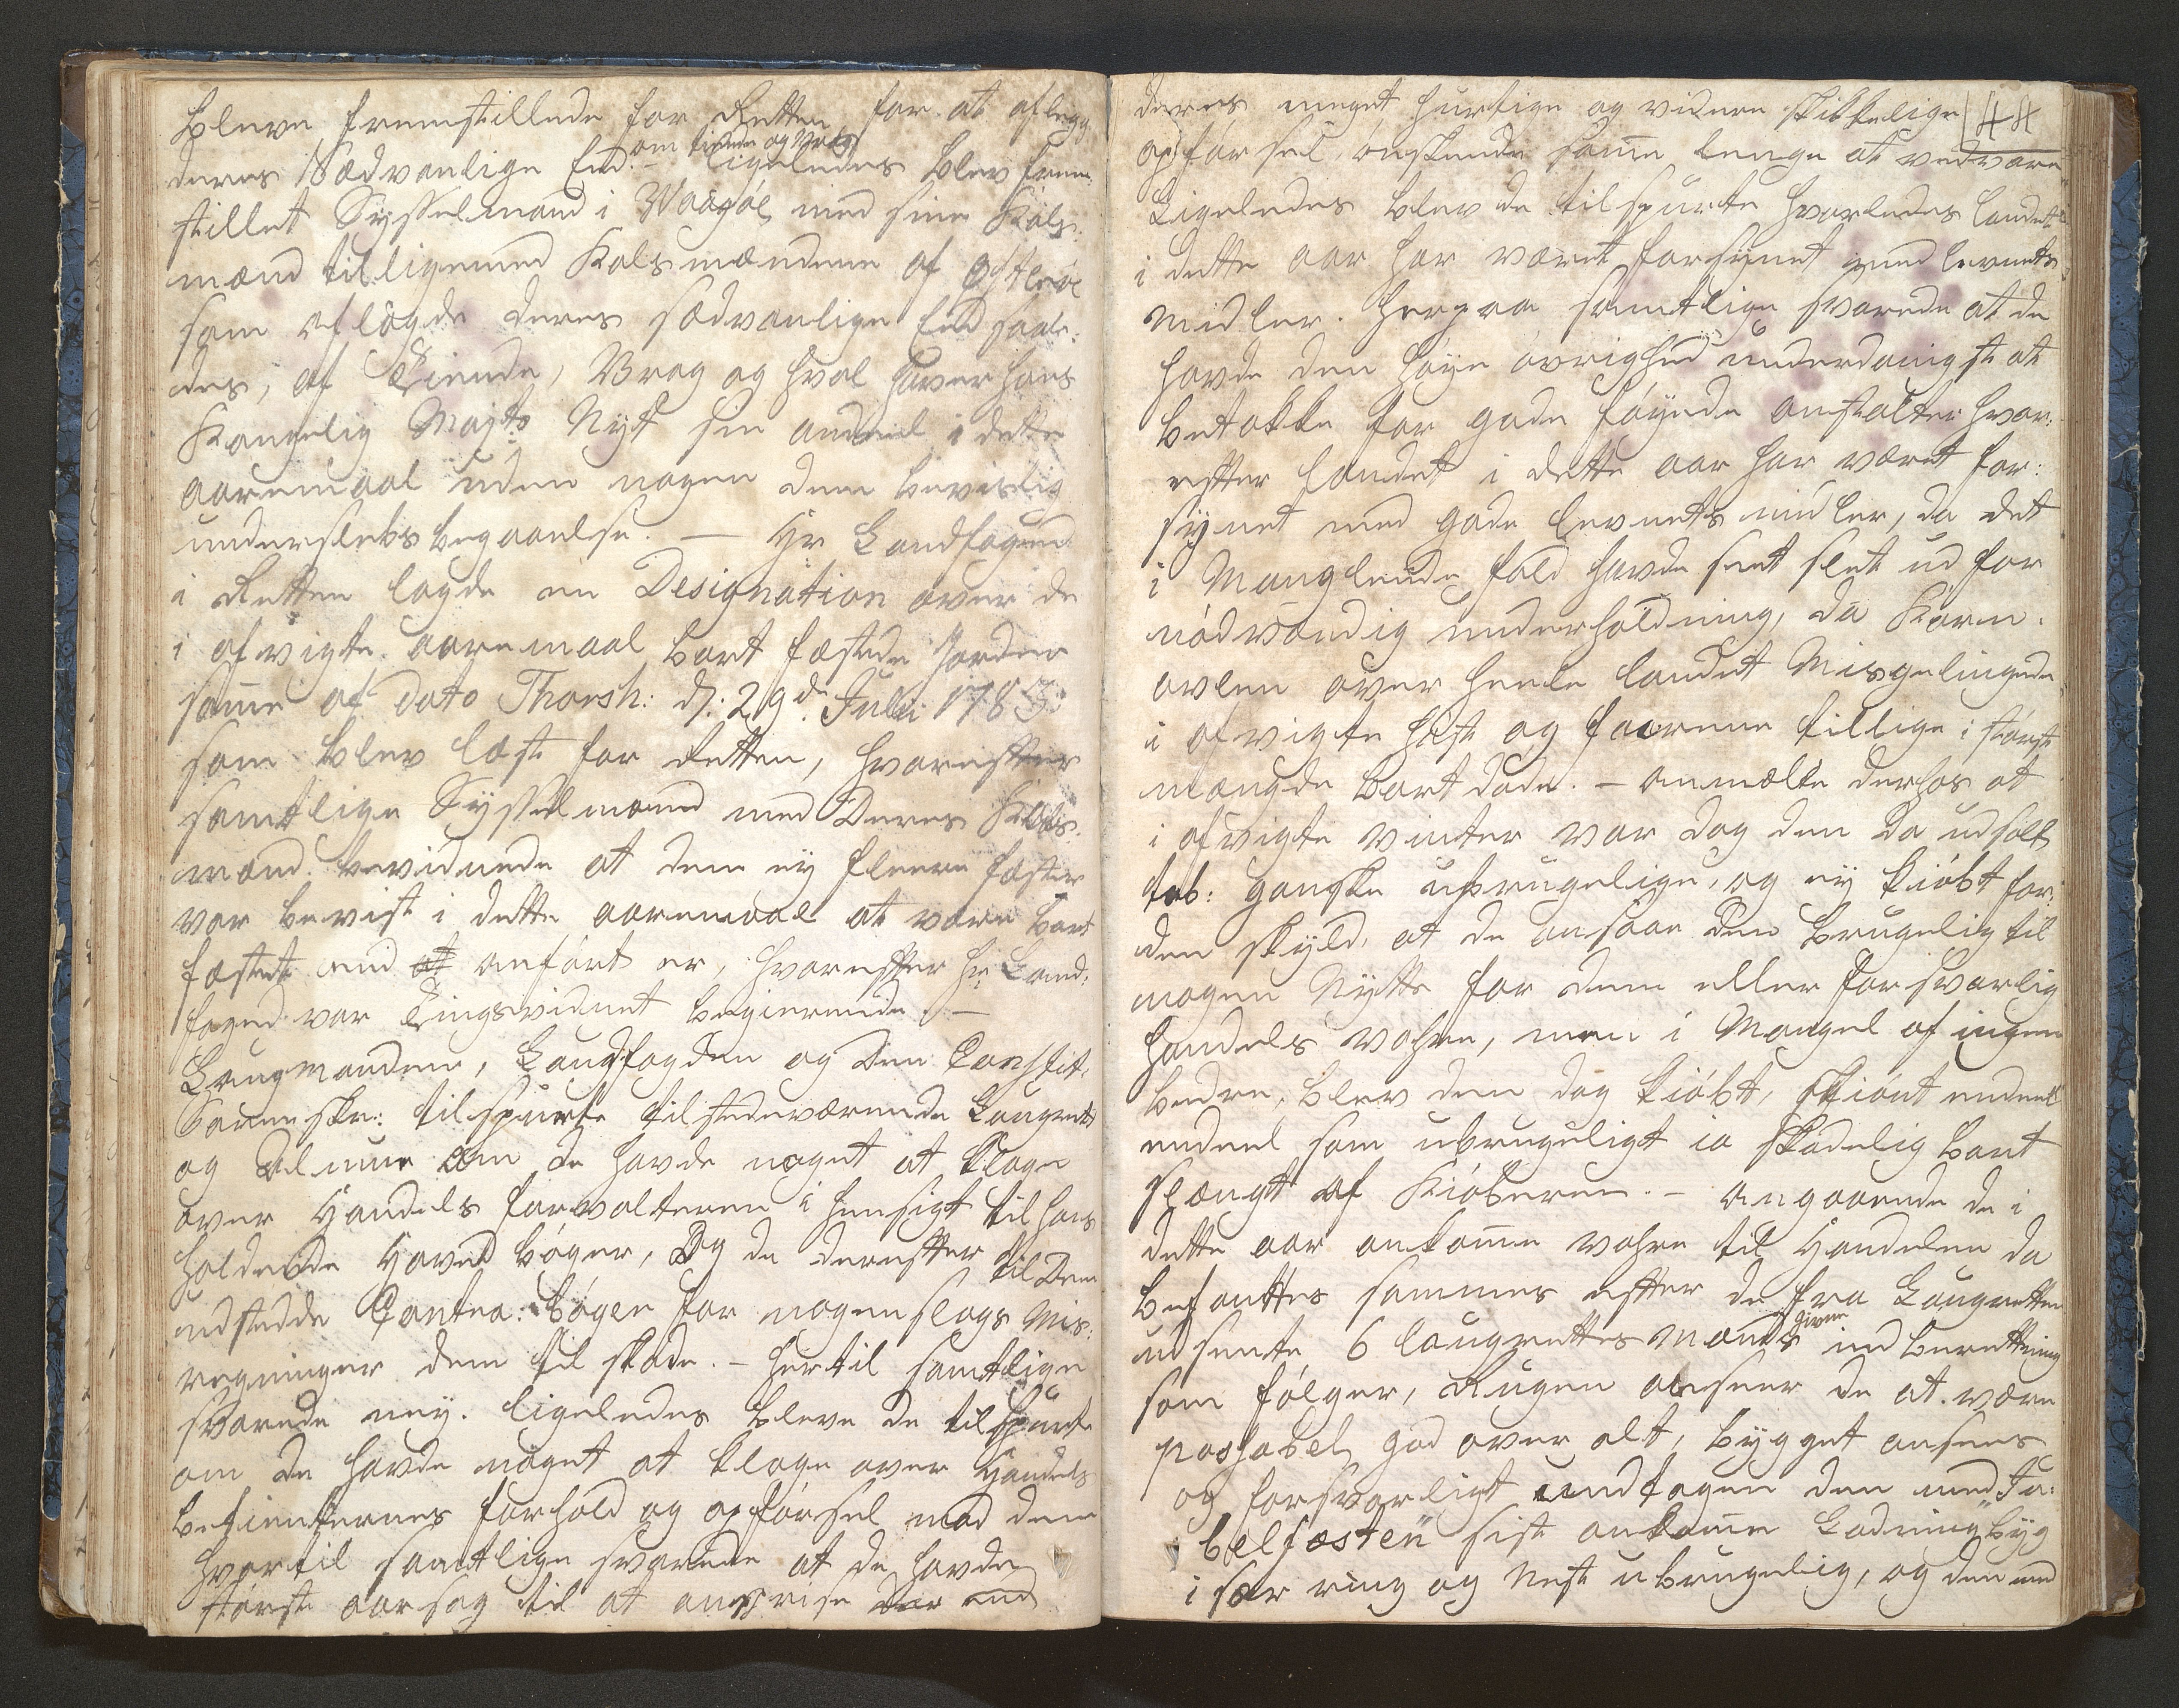 bleve fremstillede for Retten for at aflegge
deres Sædvanlige Eed. om tiende og Vrag ligeledes blev frem-
stillet Sysselmand i Waagöe med sine Kals-
mænd tilligemed Kalsmændene af Østeröe
som aflagde deres sædvanlige Eed saale-
des, af Tiende, Vrag og hval haver hans
Kongelig Majts Nyt sin andeel i dette
aaremaal uden nogen dem bevislig
underslebs begaaelse. — Hr Landfoged
i Retten lagde en Designation over de
i afvigte aaremaal bort fæstede Jorder
same af dato Thorsh: d: 29de Julii 1785:
som blev læst for Retten, hvorefter
samtlige Sysselmænd med Deres Kals-
mænd bevidnede at dem ey fleere fæster
var bevist i dette aaremaal at være bort
fæstet end at anført er, hvorefter Hr Land-
foged var Tingsvidnet begierende. —
Laugmanden, Landfogden og Den Constit.
Sorenskr: tilspurte tilstedeværende Laugrett
og Almue om de havde noget at klage
over Handels forvalteren i hensigt til hans
holdende Hoved bøger, Og de derefter til Dem
udstedde Contra: bøger for nogen slags Mis-
regninger dem til skade. — hertil samtlige
svarede ney. ligeledes bleve de tilspurte
om de havde noget at klage over Handels
betienternes forhold og opførsel mod dem
hvortil samtlige svarede at de havde
største aarsag til at anprise
44
deres meget hurtige og videre skikkelige
opførsel, ønskende same lenge at vedvare
Ligeledes blev de tilspurte hvorledes landet
i dette aar har været forsynet med levnets
Midler. herpaa samtlige svarede at de
havde den høye øvrighed underdanigst at
betakke for gode føyede anstalter hvor-
efter landet i dette aar har været for-
synet med gode levnets midler, da det
i Manglende fald havde seet slet ud for
nødvændig underholdning, da Korn-
avlen over heele landet Misgelingede
i afvigte høst og faarene tillige i størst
mængde bort døde. — anmælte derhos at
i afvigte vinter var dog den da udsolt
tob: ganske ubrugelige, og ey kiöbt for-
den skyld, at de ansaae den brugelig til
nogen Nytte for dem eller forsvarlig
handels vahre, men i Mangel af ingen
bedre, blev den dog kiöbt, skiönt endeel
endeel som ubrugeligt ia skadelig bort
slængt af Kiöberen. — angaaende de i
dette aar ankomne vahre til Handelen da
befanttes sammes efter de fra Laugretten
udsente 6 laugrettes Mænds givne indberettning
som følger, Rugen anseer de at være
passabel god over alt, bygget ansees
og forsvarligt undtagen den med Ju-
belfæsten sist ankomne Ladning byg
især ring og Nest ubrugelig, og den med